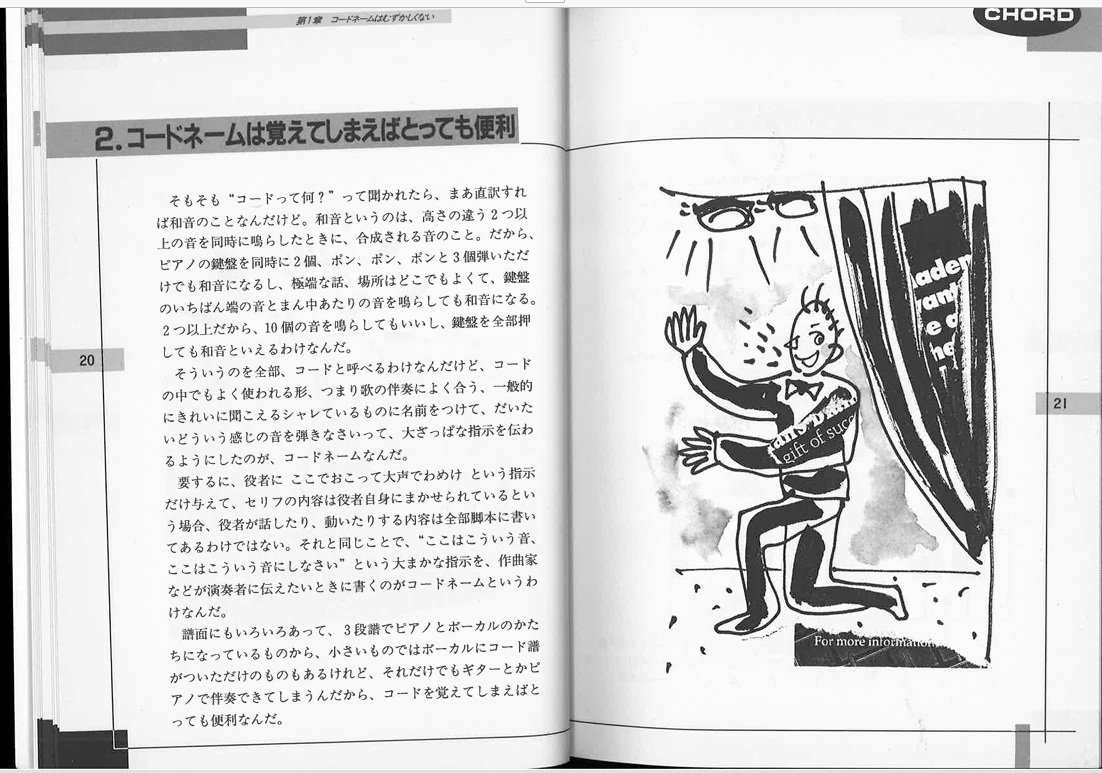 第1章 コードネームはむずかしくない
CHORD
2. コードネームは覚えてしまえばとっても便利
そもそも“コードって何？”って聞かれたら、まあ直訳すれ
ば和音のことなんだけど。和音というのは、高さの違う2つ以
上の音を同時に鳴らしたときに、合成される音のこと。だから、
ピアノの鍵盤を同時に2個、ポン、ポン、ポンと3個弾いただ
けでも和音になるし、極端な話、場所はどこでもよくて、鍵盤
のいちばん端の音とまん中あたりの音を鳴らしても和音になる。
2つ以上だから、10個の音を鳴らしてもいいし、鍵盤を全部押
しても和音といえるわけなんだ。
そういうのを全部、コードと呼べるわけなんだけど、コード
の中でもよく使われる形、つまり歌の伴奏によく合う、一般的
にきれいに聞こえるシャレているものに名前をつけて、だいた
いどういう感じの音を弾きなさいって、大ざっぱな指示を伝わ
るようにしたのが、コードネームなんだ。
要するに、役者に ここでおこって大声でわめけ という指示
だけ与えて、セリフの内容は役者自身にまかせられているとい
う場合、役者が話したり、動いたりする内容は全部脚本に書い
てあるわけではない。それと同じことで、“ここはこういう音、
ここはこういう音にしなさい”という大まかな指示を、作曲家
などが演奏者に伝えたいときに書くのがコードネームというわ
けなんだ。
譜面にもいろいろあって、3段譜でピアノとボーカルのかた
ちになっているものから、小さいものではボーカルにコード譜
がついただけのものもあるけれど、それだけでもギターとかピ
アノで伴奏できてしまうんだから、コードを覚えてしまえばと
っても便利なんだ。
20
ader
an
e
he
gift of succ
For more information
21